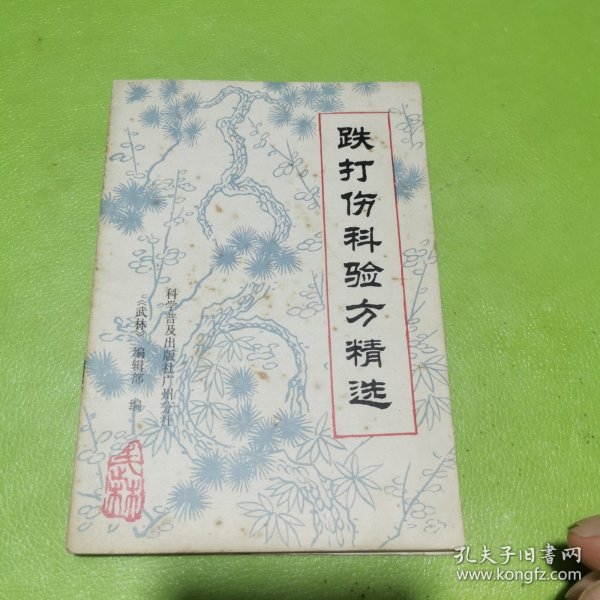 跌打伤科验方精选
科学普及出版社广州分社
《武林》编辑部 编
武林
孔夫子旧书网
www.kongfz.com